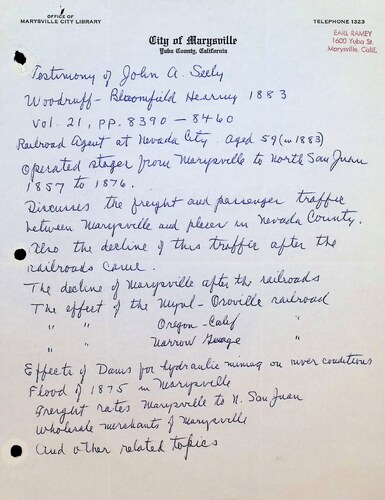 OFFICE OF
MARYSVILLE CITY LIBRARY
TELEPHONE 1323
City of Marysville
Yuba County, California
EARL RAMEY
1600 Yuba St.
Marysville, Calif.
Testimony of John A. Seely
Woodruff - Bloomfield Hearing 1883
Vol. 21, pp. 8390 - 8460
Railroad Agent at Nevada City. Aged 59 (in 1883)
Operated stages from Marysville to North San Juan
1857 to 1876.
Discusses the freight and passenger traffic
between Marysville and places in Nevada County.
Also the decline of this traffic after the
railroads came.
The decline of Marysville after the railroads
The effect of the - Oroville railroad
" " Oregon - Calif "
Narrow Guage "
Effects of Dams for hydraulic mining on river conditions
Flood of 1875 in Marysville
Freight rates Marysville to N. San Juan
Wholesale merchants of Marysville
And other related topics